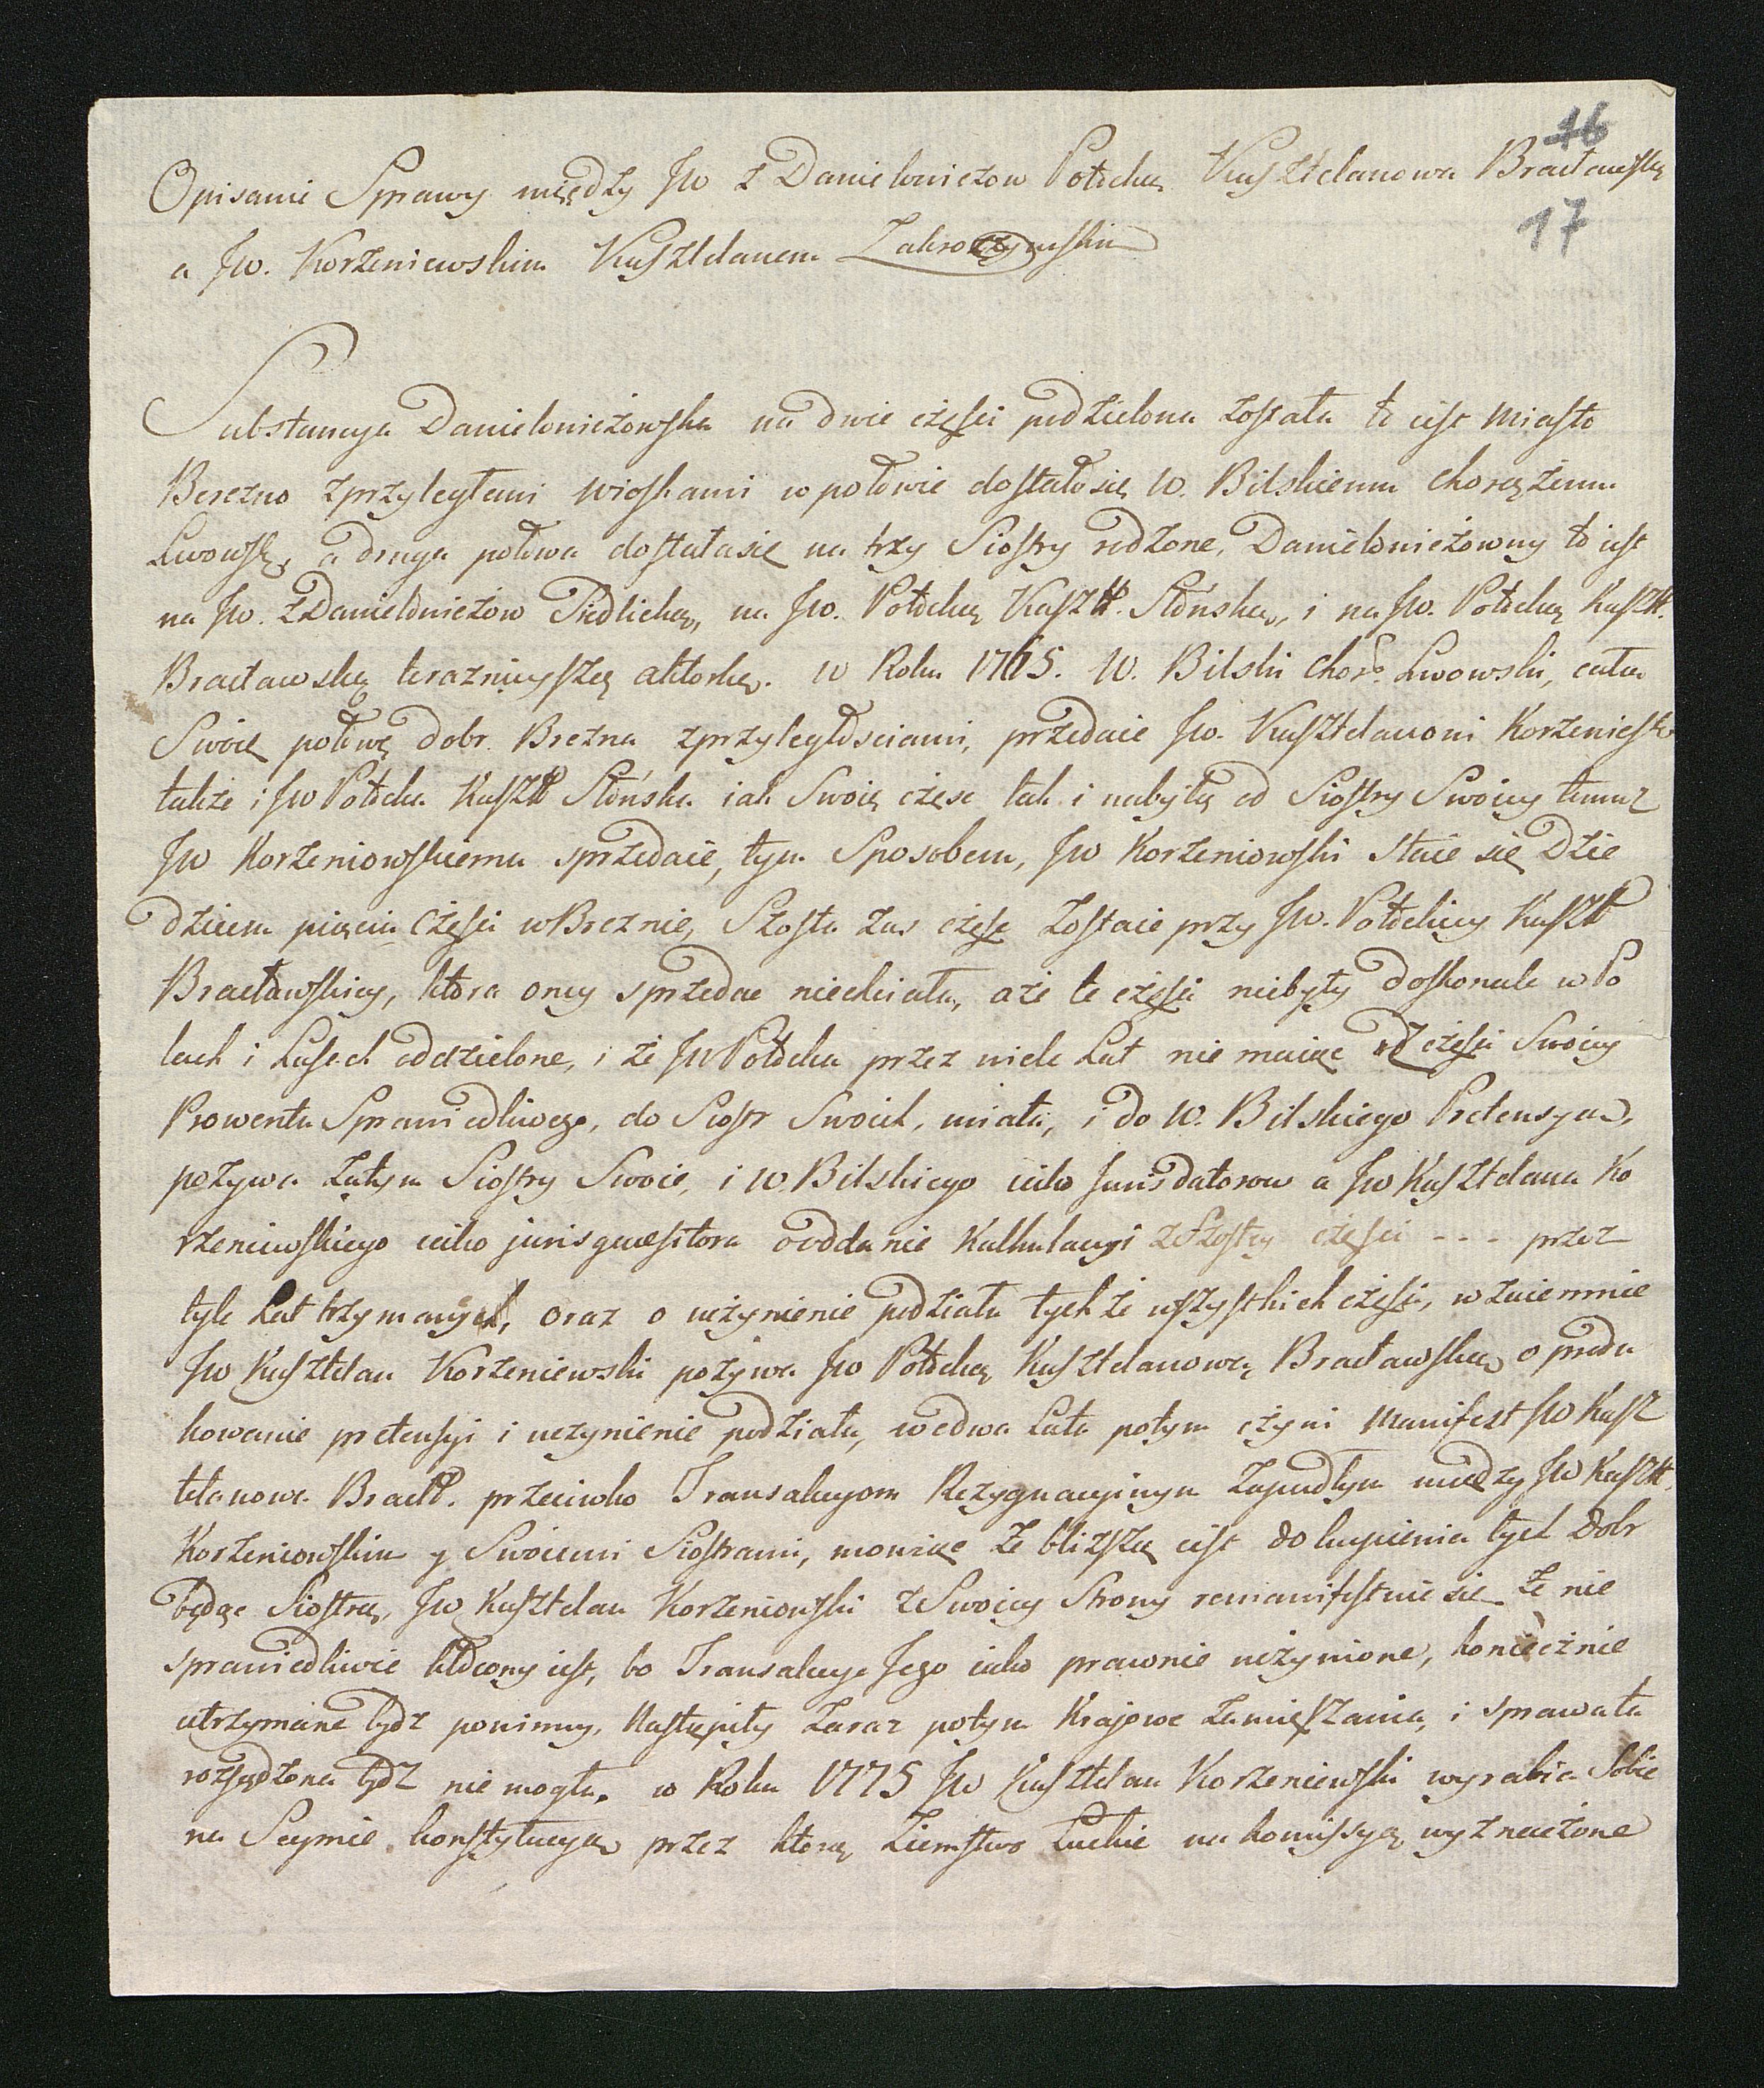 16
Opisanie Sprawy między Jw z Danielowiczow Potocką Kasztelanową Bracławską
17
a Jw. Korzeniewskim Kasztelanem Zakroczymskim
Substancya Danielowiczowska na dwie częsci podzielona została to iest Miasto
Berezno zprzyległemi wioskami w połowie dostało się W. Bilskiemu Chorążemu
Lwowskᵘ, a druga połowa dostała się na trzy Siostry rodzone, Danielowiczowny to iest
na Jw. z Danielowiczow Siedlicką, na Jw. Potocką Kasztt. Słońską, i na Jw. Potocką Kasztt.
Bracławską teraznieyszą aktorkę. w Roku 1765. W. Bilski Chorº. Lwowski, całą
Swoię połowę dobr Brezna zprzyległościami, przedaie Jw. Kasztelanowi Korzeniesk
także i Jw Potocka Kasztt Słońska iak Swoię częsc tak i nabytą od Siostry Swoiey temuz
Jw Korzeniowskiemu sprzedaie, tym Sposobem, Jw Korzeniowski staie się Dzie
dzicem pięciu Części w Breznie, Szosta zas częsc zostaie przy Jw. Potockiey Kasztt
Bracławskiey, ktora oney sprzedac niechciała, aże te częsci niebyły doskonale w Po
lach i Lasach oddzielone, i że Jw Potocka przez wiele Lat nie maiąc z części Swoiey
Prowentu Sprawiedliwego, do Siostr Swoich, miała, i do W. Bilskiego Pretensyą,
pozywa zatym Siostry Swoie, i W. Bilskiego iako Jurisdatorow a Jw Kasztelana Ko
rzeniewskiego iako jurisquaesitora o oddanie Kalkulacyi z Szostey części - - - przez
tyle Lat trzymaney, oraz o uczynienie podziału tychże wszystkich częsci, wzaiemnie
Jw Kasztelan Korzeniewski pozywa Jw Potocką Kasztelanową Bracławską o produ
kowanie pretensyi i uczynienie podziału, we dwa Lata potym czyni Manifest Jw Kasz
telanowa Bracłł. przeciwko Transakcyom Rezygnacyinym zapadłym między Jw Kasztt.
Korzeniowskim y Swoiemi Siostrami, mowiąc ze bliższą iest do kupienia tych Dobr
będąc Siostrą, Jw Kasztelan Korzeniowski z Swoiey Strony remanifestuie się ze nie
sprawiedliwie kłocony iest, bo Transakcye Jego iako prawnie uczynione, koniecznie
utrzymane bydz powinny, Nastąpiły zaraz potym Krajowe zamięszania, i sprawa ta
rozsądzona bydz nie mogła. w Roku 1775 Jw Kasztelan Korzeniewski wyrabia Sobie
na Seymie konstytucyą przez ktorą Ziemstwo Łuckie na komissyą wyznaczone